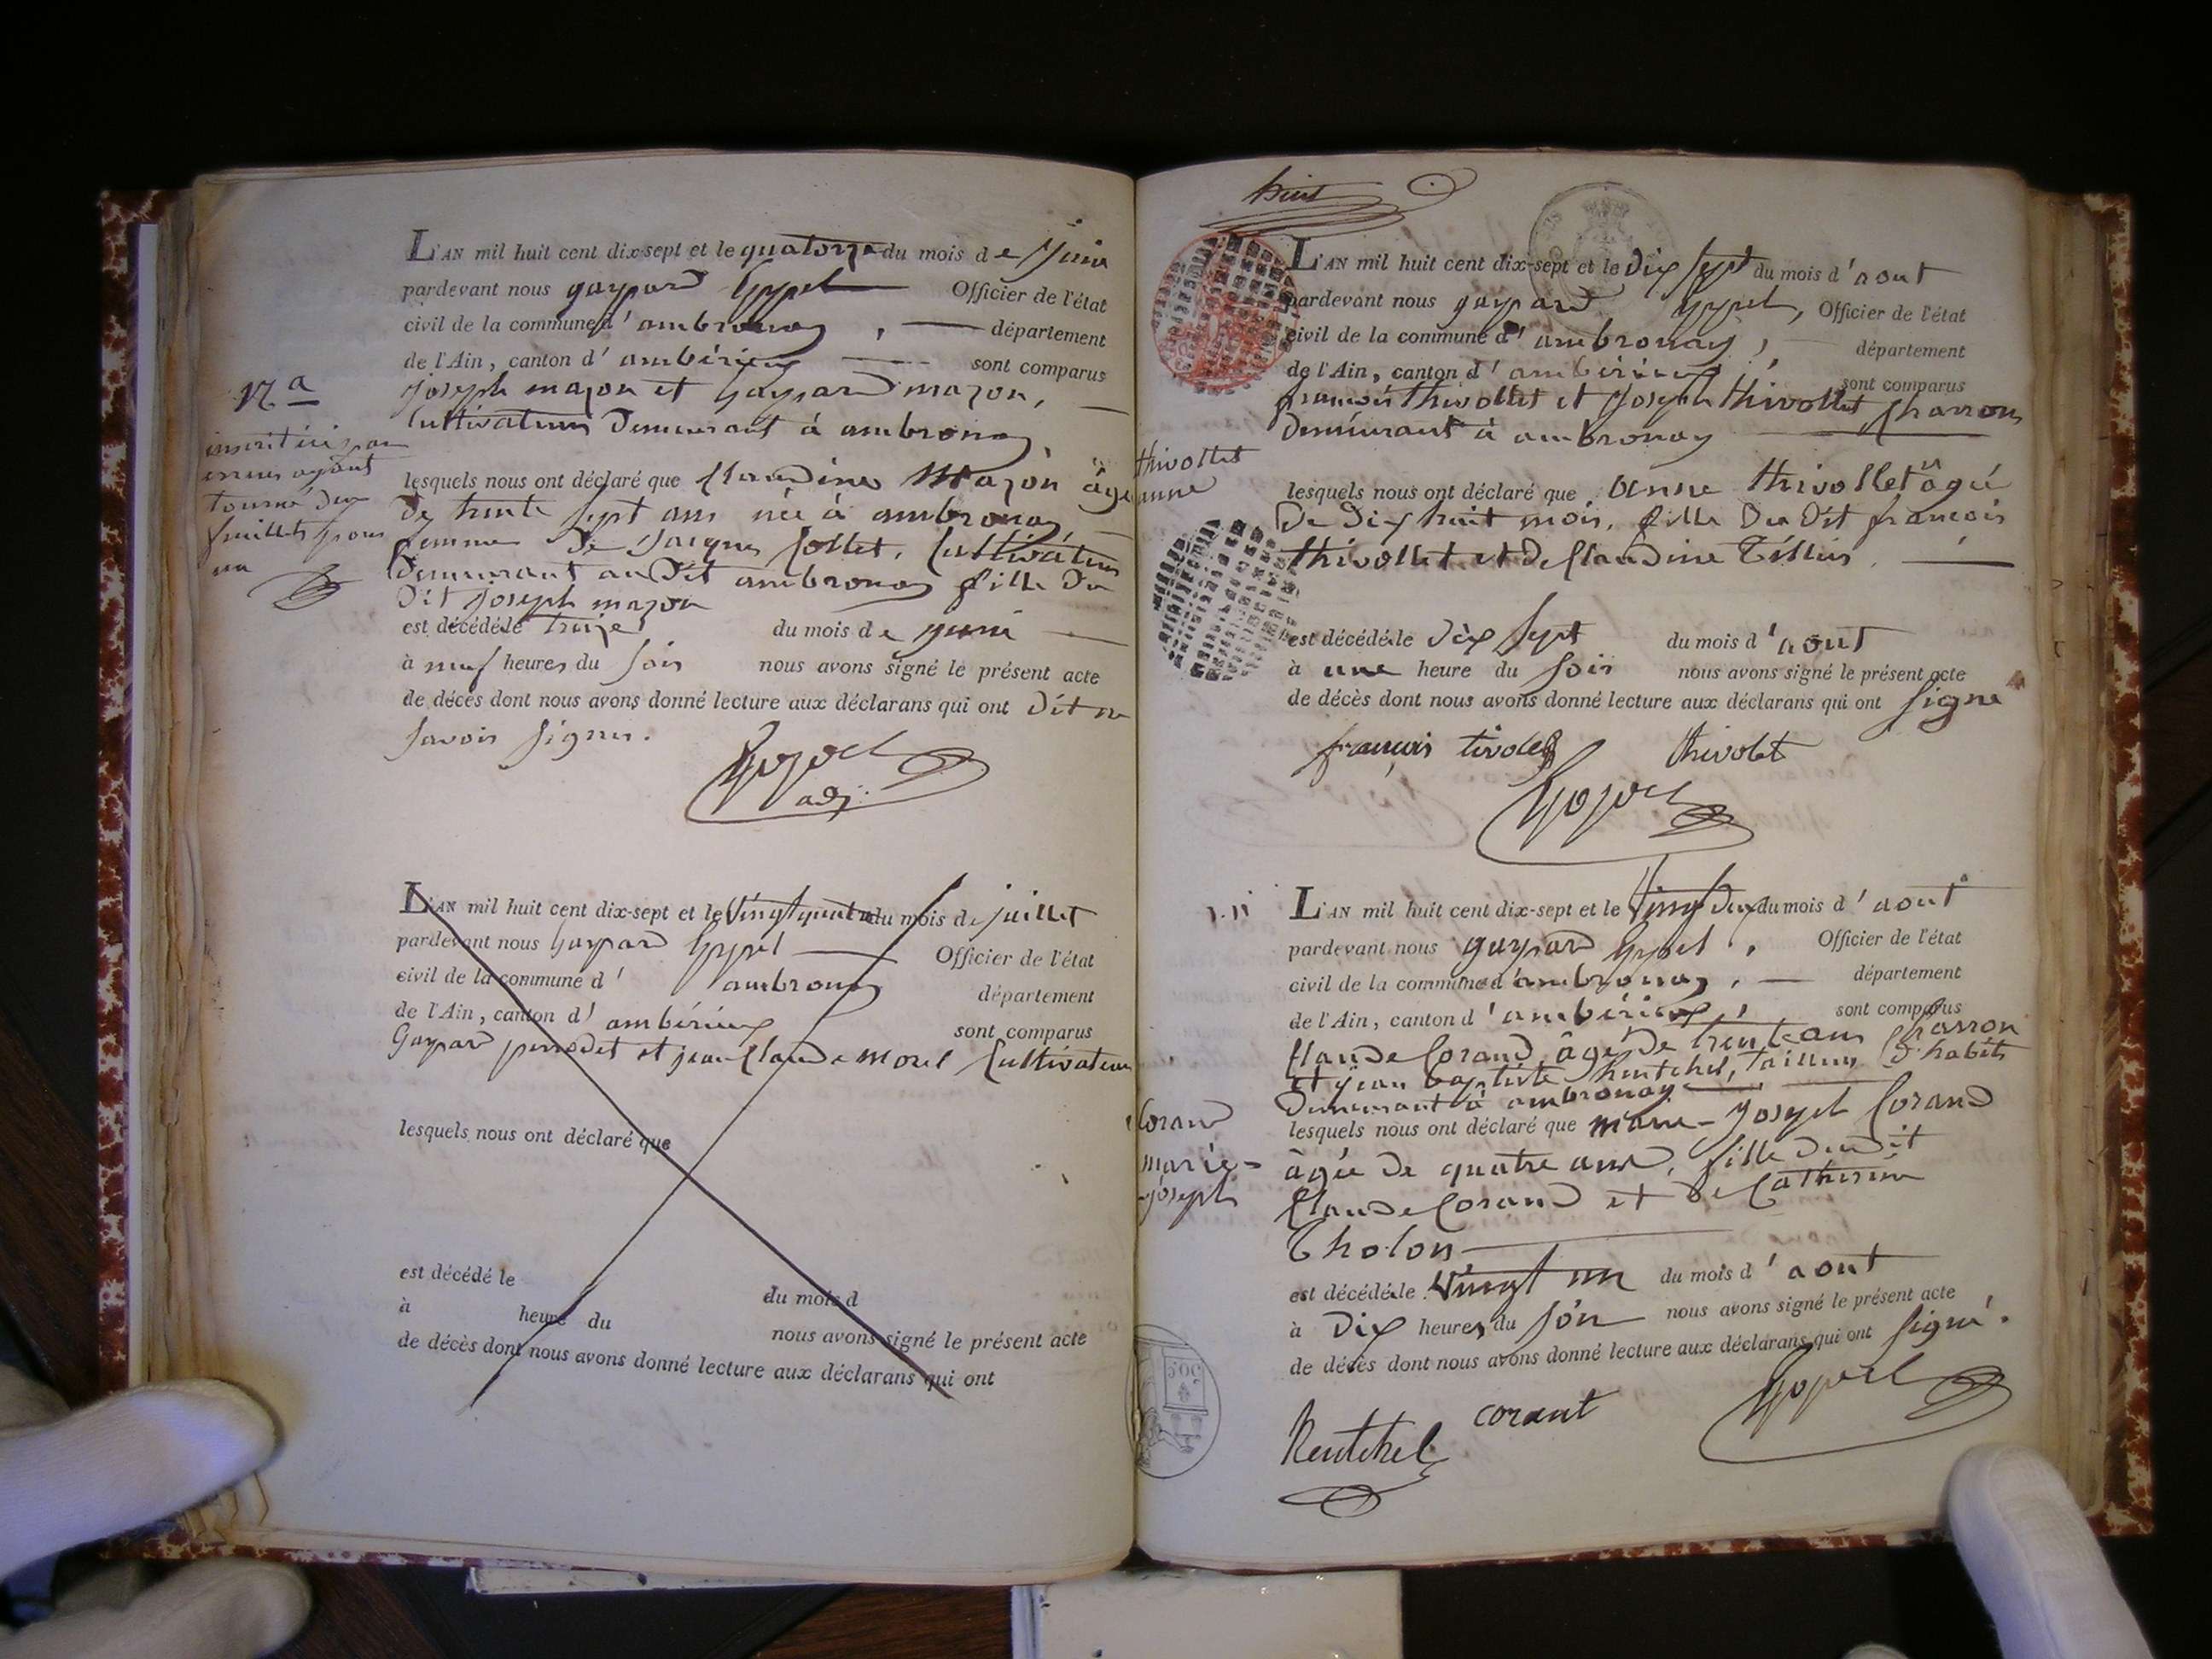 L'AN mil huit cent dix-sept et le quatorze du mois de juin
pardevant nous gaspard Gppel Officier de l'état
civil de la commune d'ambronay, département
de l'Ain, canton d'ambérieux sont comparus
joseph mazon et gaspard mazon,
Cultivateurs Demeurant à ambronay
Na
inscrit ici par
erreur ayant
tourné deux
feuillets pour
un
lesquels nous ont déclaré que Claudine Mazon âgé
De trente sept ans née à ambronay
femme De Jacques Collet, Cultivateur
Demeurant au Dit ambronay fille Du
Dit joseph mazon
est décédé le treize du mois de juin
à neuf heures du soir nous avons signé le présent acte
de décès dont nous avons donné lecture aux déclarans qui ont Dit ne
savoir signer.
adj.
L'AN mil huit cent dix-sept et le Vingt quatre du mois de juillet
pardevant nous Gaspard Gppel Officier de l'état
civil de la commune d'ambronay département
de l'Ain, canton d'ambérieux sont comparus
Gaspard perrodet et jean Claude Morel Cultivateurs
lesquels nous ont déclaré que
est décédé le du mois d
à heure du nous avons signé le présent acte
de décès dont nous avons donné lecture aux déclarans qui ont
huit
L'AN mil huit cent dix-sept et le Dix sept du mois d'aout
pardevant nous gaspard Gppel, Officier de l'état
civil de la commune d'ambronay, département
de l'Ain, canton d'ambérieux, sont comparus
francois thivollet et Joseph thivollet Charrons
Demeurant à ambronay
thivollet
anne
lesquels nous ont déclaré que anne thivollet âgé
De Dix huit mois, fille Du Dit francois
thivollet et De Claudine
est décédé le Dix sept du mois d'aout
à une heure du soir nous avons signé le présent acte
de décès dont nous avons donné lecture aux déclarans qui ont signé
françois tivolet thivolet
L'AN mil huit cent dix-sept et le Vingt Deux du mois d'aout
pardevant nous gaspard Gppel, Officier de l'état
civil de la commune d'ambronay, département
de l'Ain, canton d'ambérieux, sont comparus
Claude Corand, âgé De trente ans Charron
Et jean baptiste hentchel, tailleur D'habits
Demeurant à ambronay
Corand
marie-
joseph
lesquels nous ont déclaré que marie-Joseph Corand
âgée De quatre ans, fille Dudit
Claude Corand et De Catherine
Tholon
est décédé le Vingt un du mois d'aout
à Dix heures du soir nous avons signé le présent acte
de décès dont nous avons donné lecture aux déclarans qui ont signé.
corant
hentchel
50C